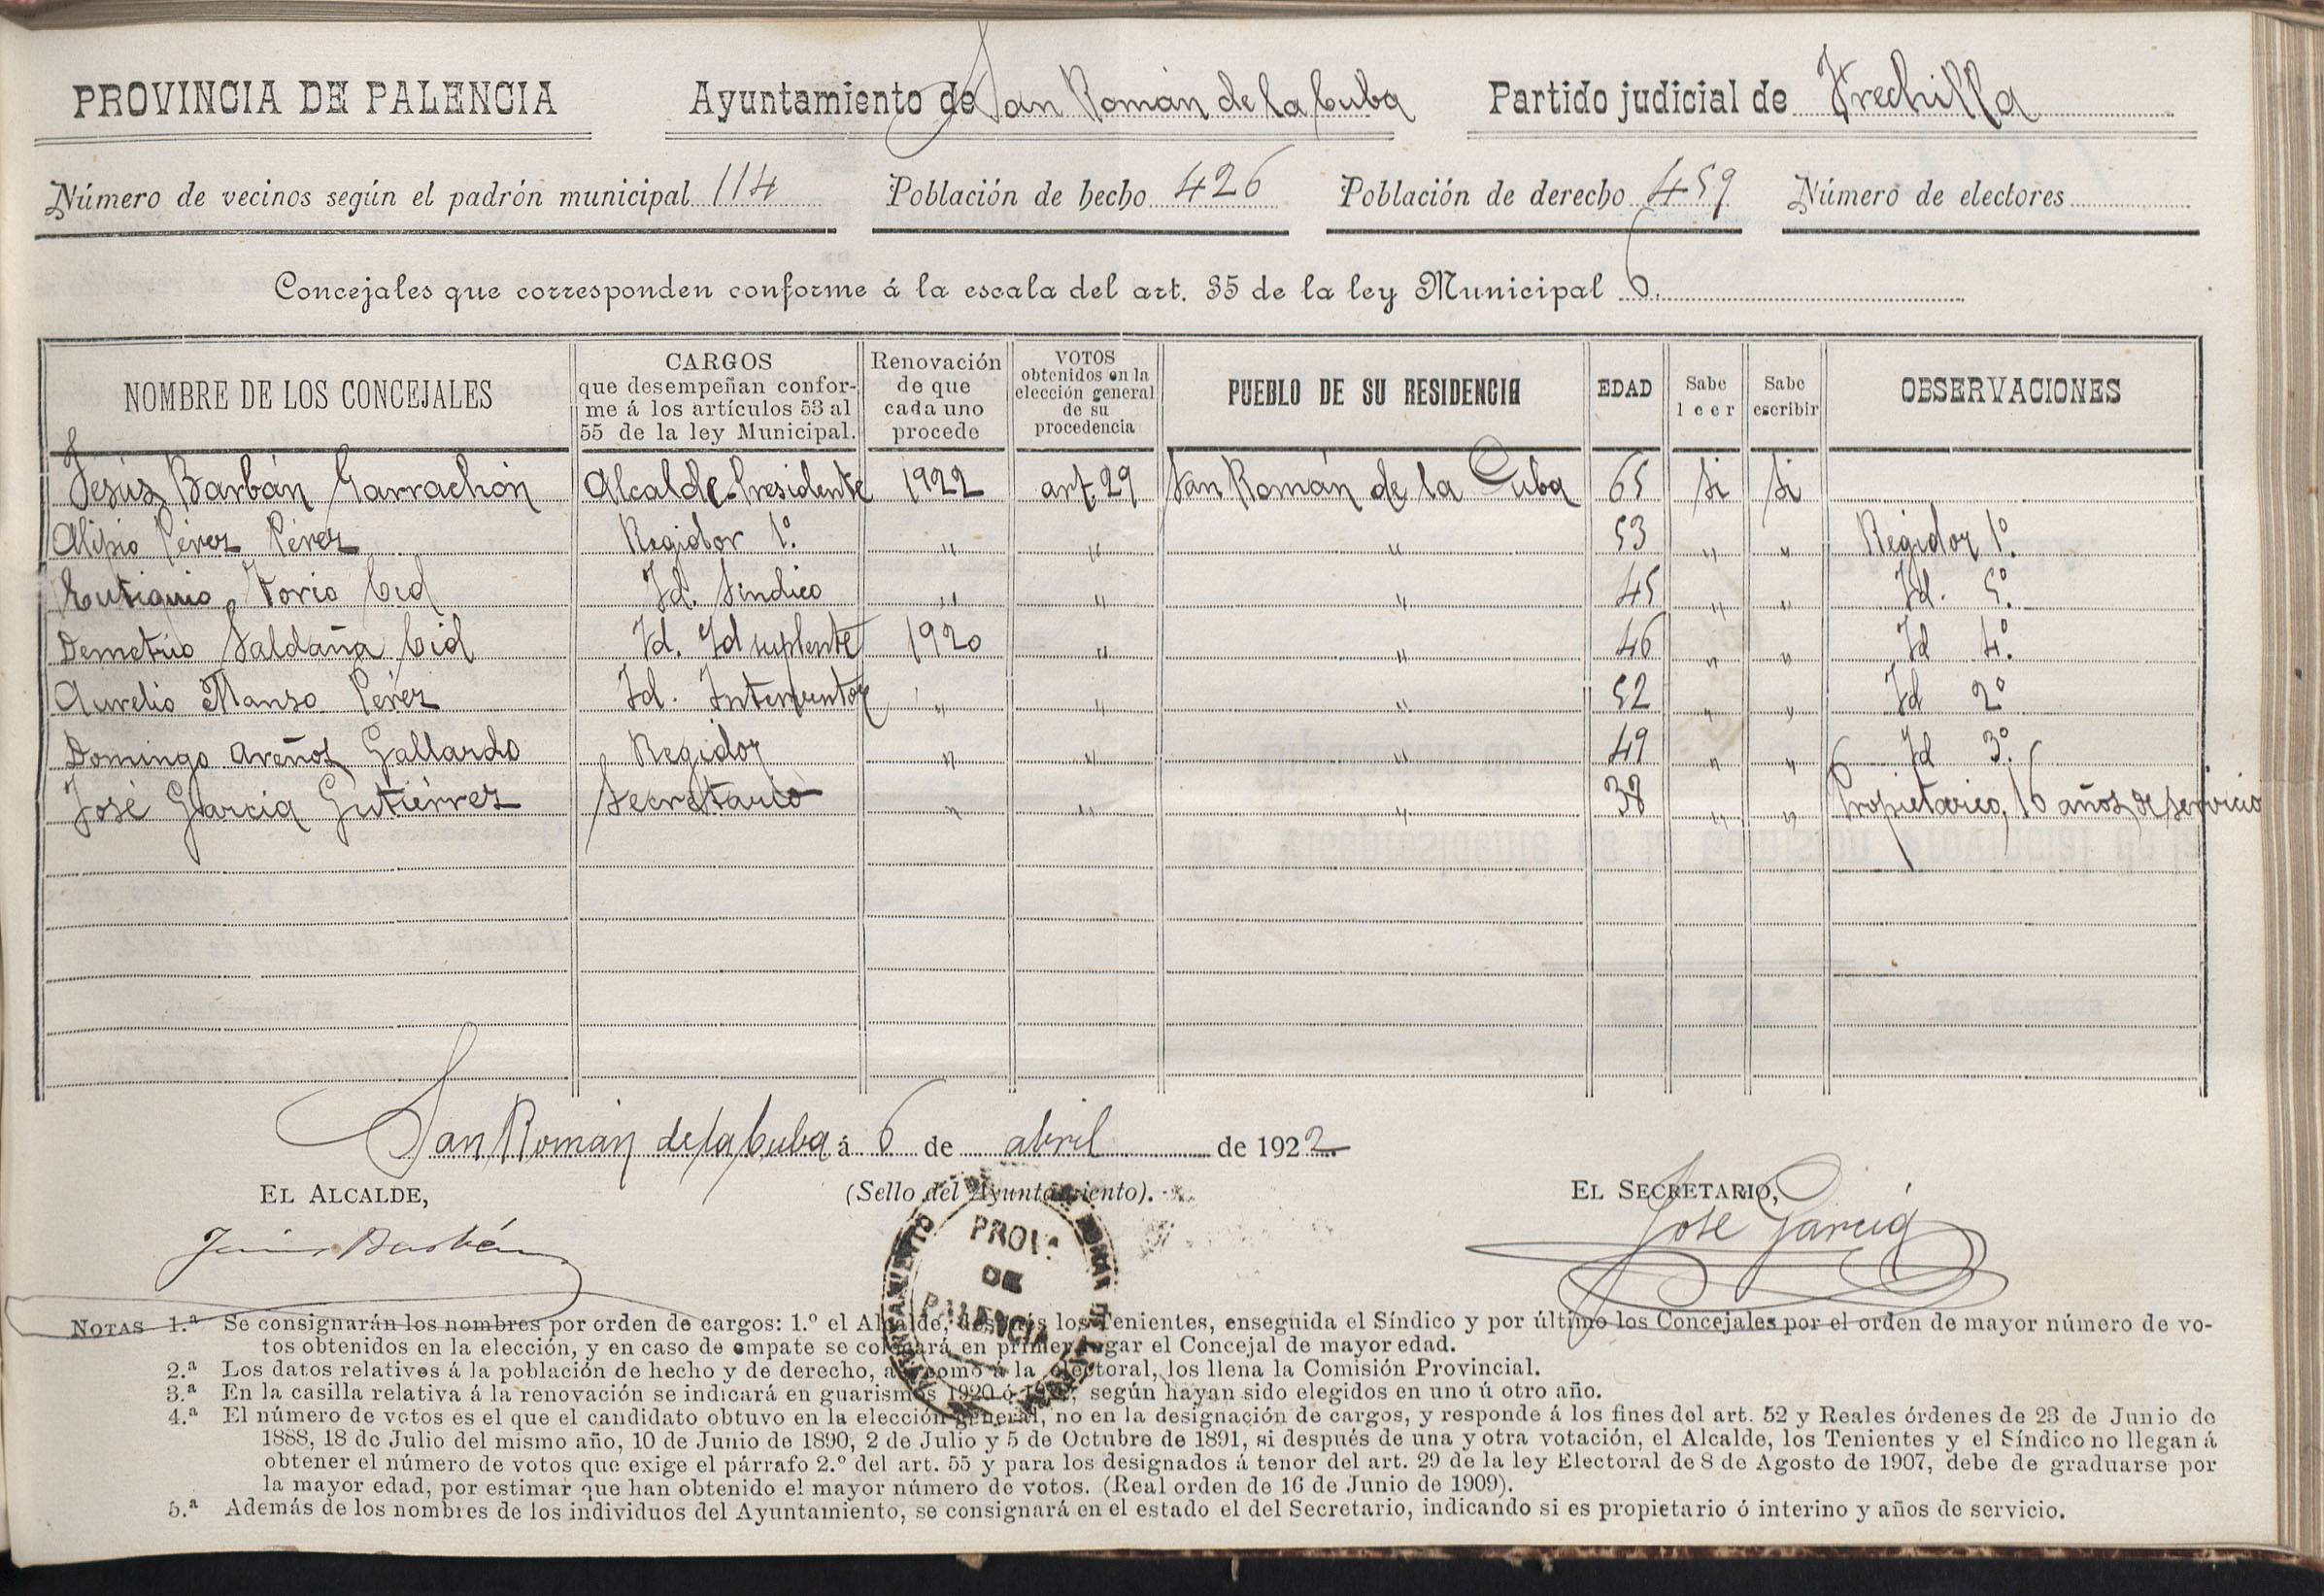 PROVINCIA DE PALENCIA Ayuntamiento de San Román de la Cuba Partido judicial de Frechilla
Número de vecinos según el padrón municipal 114 Población de hecho 426 Población de derecho 459 Número de electores
Concejales que corresponden conforme á la escala del art. 35 de la ley Municipal 6.
NOMBRE DE LOS CONCEJALES
CARGOS
que desempeñan confor-
me á los artículos 53 al
55 de la ley Municipal.
Renovación
de que
cada uno
procede
VOTOS
obtenidos en la
elección general
de su
procedencia
PUEBLO DE SU RESIDENCIA
EDAD
Sabe
leer
Sabe
escribir
OBSERVACIONES
Jesús Barbán Garrachón Alcalde-Presidente 1922 art 29 San Román de la Cuba 65 Si Si
Alipio Pérez Pérez Regidor 1.º " " " 53 " " Regidor 1º.
Eutiquio Torio Cid Id. Síndico " " " 45 " " Id. 5º.
Demetrio Saldaña Cid Id. Id suplente 1920 " " 46 " " Id 4º.
Aurelio Manso Pérez Id. Interventor " " " 52 " " Id 2º
Domingo Areños Gallardo Regidor " " " 49 " " Id 3º.
José García Gutiérrez Secretario " " " 38 " " Propietario, 16 años de servicio
San Román de la Cuba á 6 de abril de 1922.
EL ALCALDE, (Sello del Ayuntamiento). EL SECRETARIO,
Jesús Barbán
José García
AYUNTAMIENTO
PROV.
DE
PALENCIA
NOTAS 1.ª Se consignarán los nombres por orden de cargos: 1.º el Alcalde, después los Tenientes, enseguida el Síndico y por último los Concejales por el orden de mayor número de vo-
tos obtenidos en la elección, y en caso de empate se colocará en primer lugar el Concejal de mayor edad.
2.ª Los datos relativos á la población de hecho y de derecho, así como á la electoral, los llena la Comisión Provincial.
3.ª En la casilla relativa á la renovación se indicará en guarismos 1920 ó 1922, según hayan sido elegidos en uno ú otro año.
4.ª El número de votos es el que el candidato obtuvo en la elección general, no en la designación de cargos, y responde á los fines del art. 52 y Reales órdenes de 23 de Junio de
1888, 18 de Julio del mismo año, 10 de Junio de 1890, 2 de Julio y 5 de Octubre de 1891, si después de una y otra votación, el Alcalde, los Tenientes y el Síndico no llegan á
obtener el número de votos que exige el párrafo 2.º del art. 55 y para los designados á tenor del art. 29 de la ley Electoral de 8 de Agosto de 1907, debe de graduarse por
la mayor edad, por estimar que han obtenido el mayor número de votos. (Real orden de 16 de Junio de 1909).
5.ª Además de los nombres de los individuos del Ayuntamiento, se consignará en el estado el del Secretario, indicando si es propietario ó interino y años de servicio.